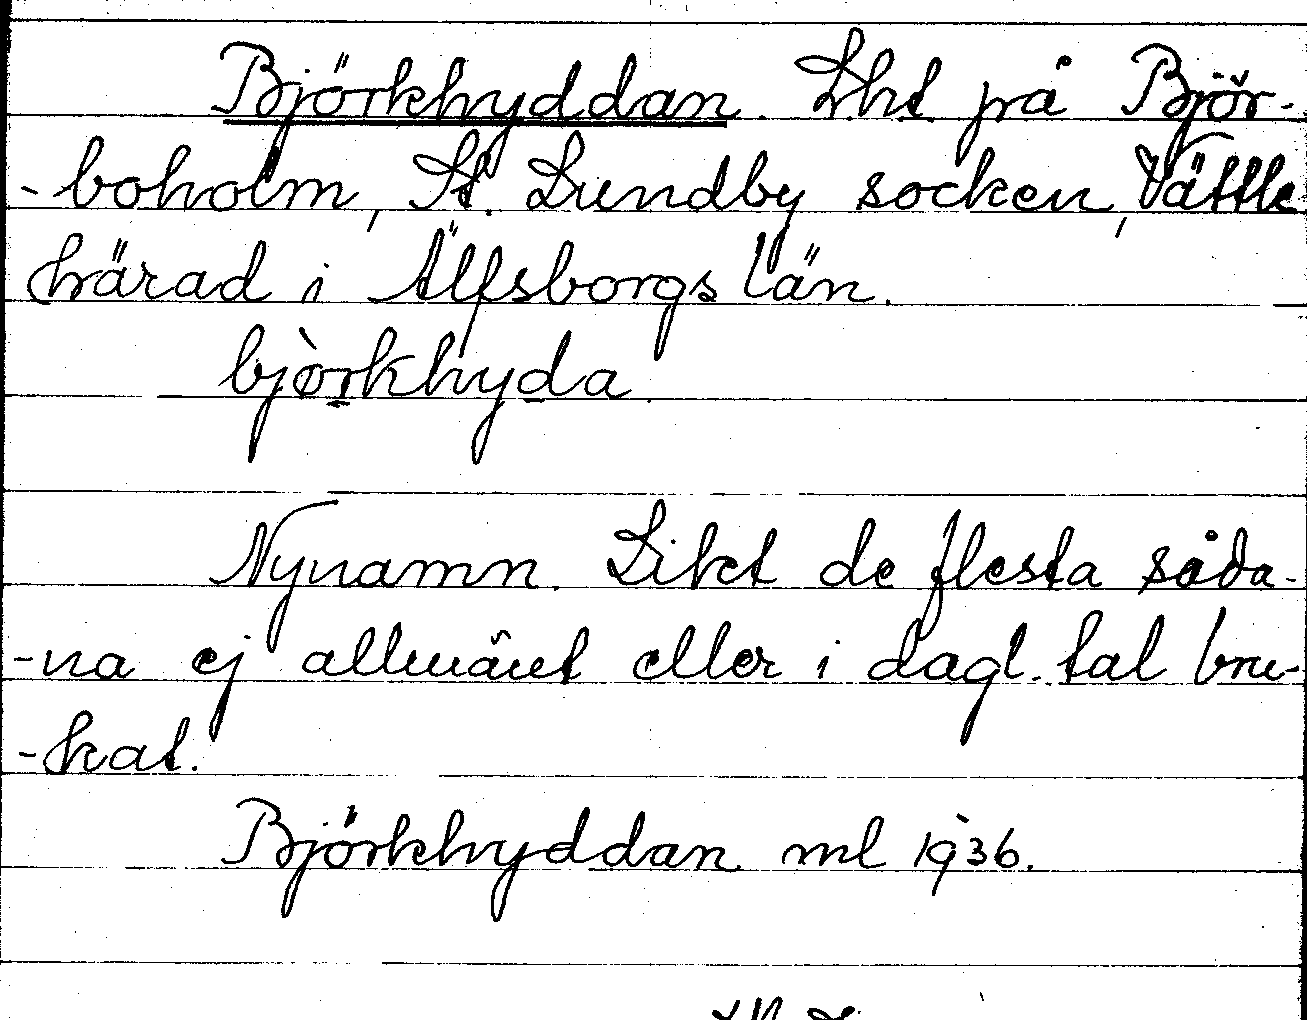 Björkhyddan. Lht på Björ-
-boholm, St. Lundby socken, Vättle
härad i Älfsborgs län.
bjòrkhyda.
Nynamn. Likt de flesta såda-
-na ej allmänt eller i dagl. tal bru-
-kat.
Björkhyddan ml 1936.